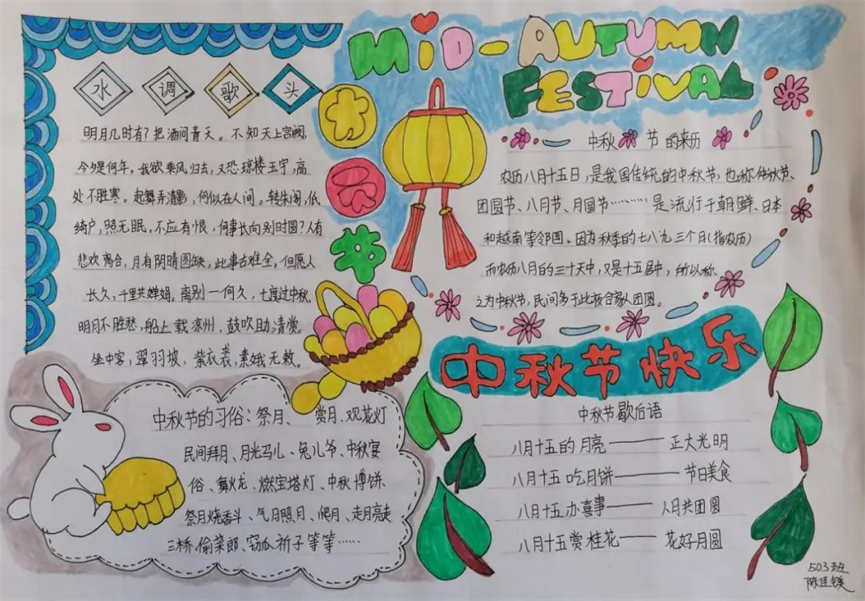 MiD-AUTUMN
FESTiVAL
水调歌头
明月几时有？把酒问青天。不知天上宫阙，
今夕是何年。我欲乘风归去，又恐琼楼玉宇，高
处不胜寒。起舞弄清影，何似在人间。转朱阁，低
绮户，照无眠。不应有恨，何事长向别时圆？人有
悲欢离合，月有阴晴圆缺，此事古难全。但愿人
长久，千里共婵娟。离别一何久，七度过中秋。
明月不胜愁，船上载凉州，鼓吹助清赏。
坐中客，翠羽坡，紫衣裘，素娥无赖。
中秋节的来历
农历八月十五日，是我国传统的中秋节，也称仲秋节、
团圆节、八月节、月圆节………是流行于朝鲜、日本
和越南等邻国。因为秋季的七八九三个月（指农历）
而农历八月的三十天中，又是十五居中，所以称
之为中秋节，民间多于此夜合家人团圆。
中秋节快乐
中秋节的习俗：祭月、赏月、观花灯
民间拜月、月光马儿、兔儿爷、中秋宴
俗、舞火龙、燃宝塔灯、中秋博饼、
祭月烧香斗、气月照月、爬月、走月亮走
三桥、偷菜郎、窃瓜祈子等等……
中秋节歇后语
八月十五的月亮——正大光明
八月十五吃月饼——节日美食
八月十五办喜事——人月共团圆
八月十五赏桂花——花好月圆
503班